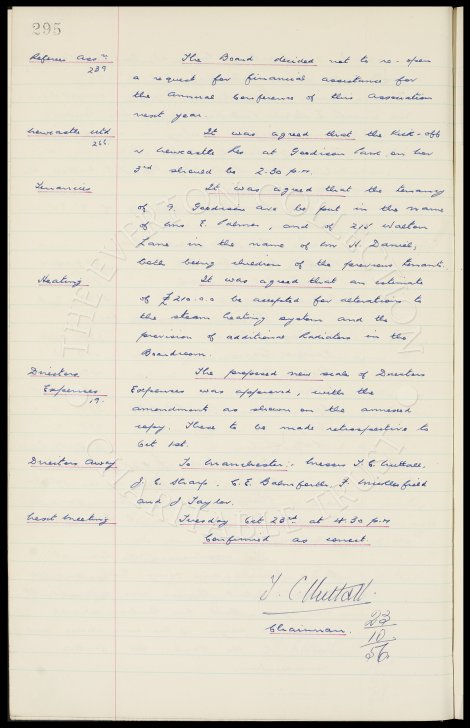 295
Referees Assn. The Board decided not to re-open
239 a request for financial assistance for
the Annual Conference of this Association
next year.
Newcastle Utd It was agreed that the Kick-off
266. v Newcastle Res at Goodison Park on Nov
3rd should be 2-30 p.m.
Tenancies It was agreed that the tenancy
of 9. Goodison Ave be put in the name
of Mrs E. Palmer, and of 215 Walton
Lane in the name of Mr H. Daniel,
both being children of the previous tenants.
Heating It was agreed that an estimate
of £210.0.0 be accepted for alterations to
the steam heating system and the
provision of additional Radiators in the
Boardroom.
Directors The proposed new scale of Directors
Expenses Expenses was approved, with the
19. amendment as shewn on the annexed
copy. These to be made retrospective to
Oct 1st.
Directors Away To Manchester: Messrs T. C. Nuttall,
J. C. Sharp, C. E. Balmforth, F. Micklesfield
and J Taylor.
Next Meeting Tuesday Oct 23rd at 4.30 p.m
Confirmed as correct.
T. C. Nuttall.
Chairman. 23
10
56
THE EVERTON COLLECTION
CHARITABLE TRUST